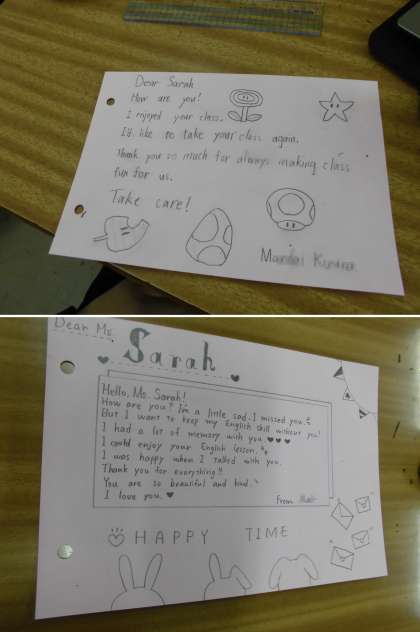 Dear Sarah
How are you?
I enjoyed your class.
I'd like to take your class again.
Thank you so much for always making class
fun for us.
Take care!
Dear Ms.
Sarah
Hello, Ms. Sarah!
How are you? I'm a little sad. I missed you.
But I want to keep my English skill without you!
I had a lot of memory with you. ♥♥♥
I could enjoy your English lesson.
I was happy when I talked with you.
Thank you for everything!!
You are so beautiful and kind.
I love you. ♥
From
HAPPY TIME